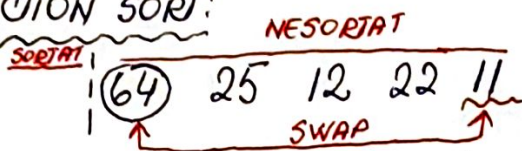 TION SORT:
NESORTAT
SORTAT
64 25 12 22 11
SWAP